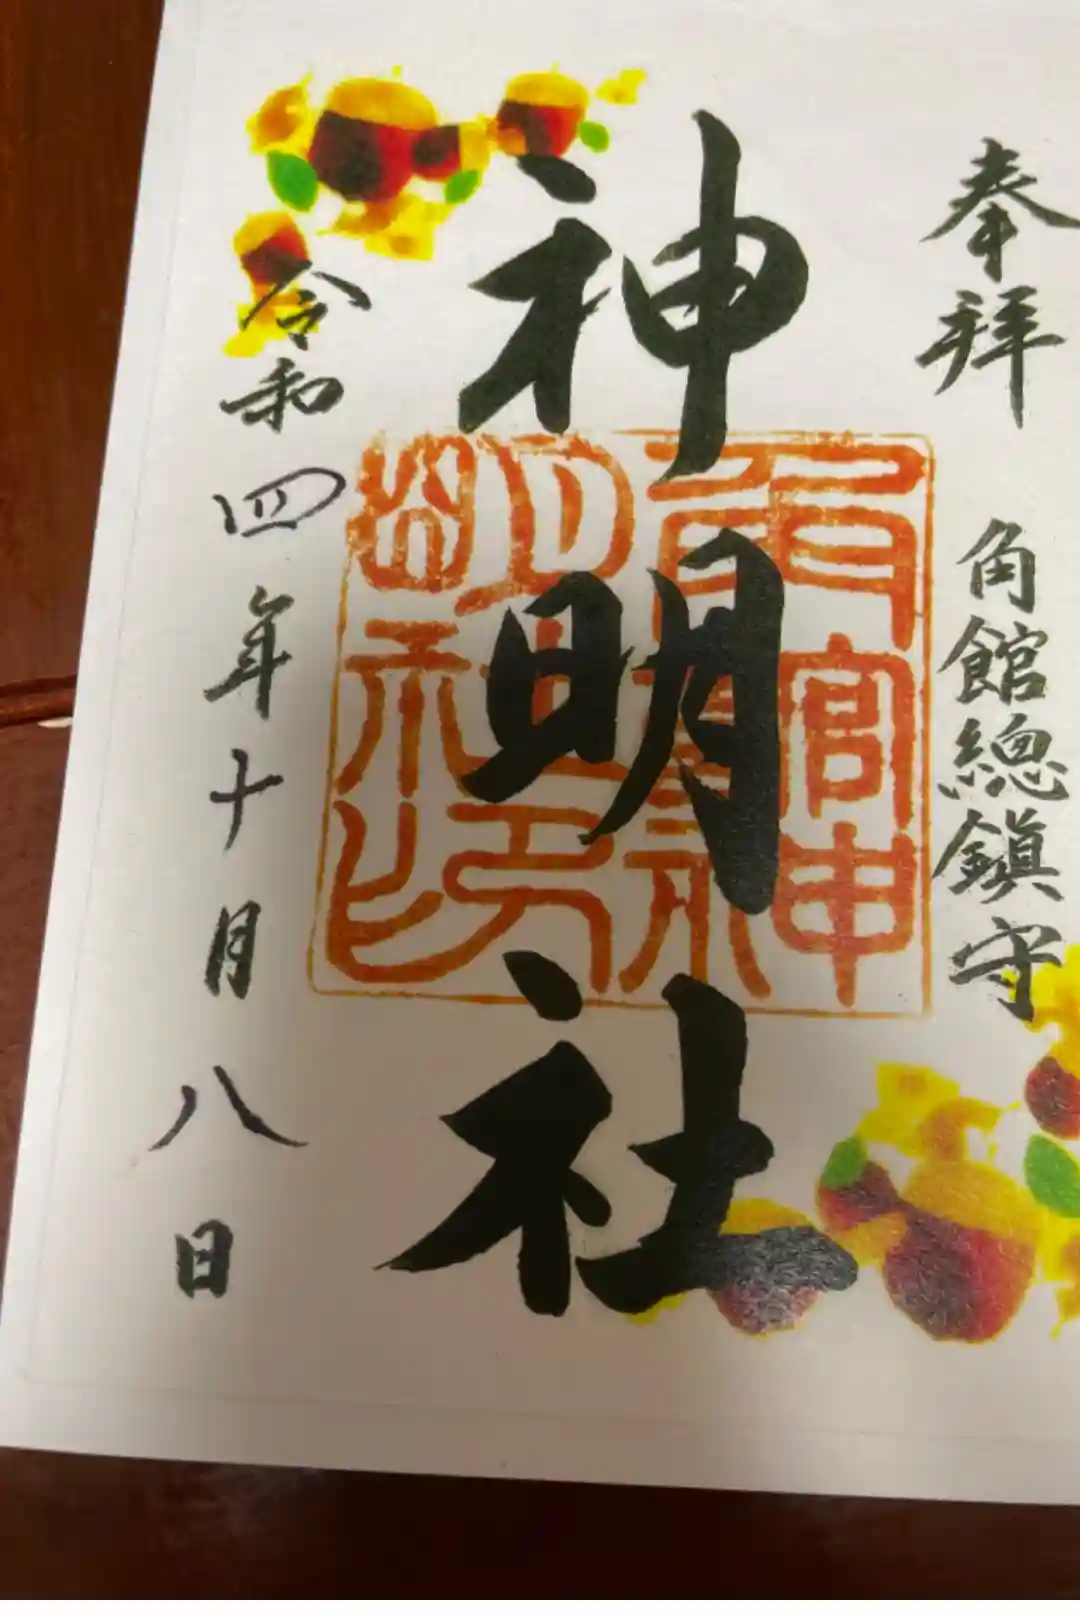 奉拜
角館總鎮守
神明社
令和四年十月八日